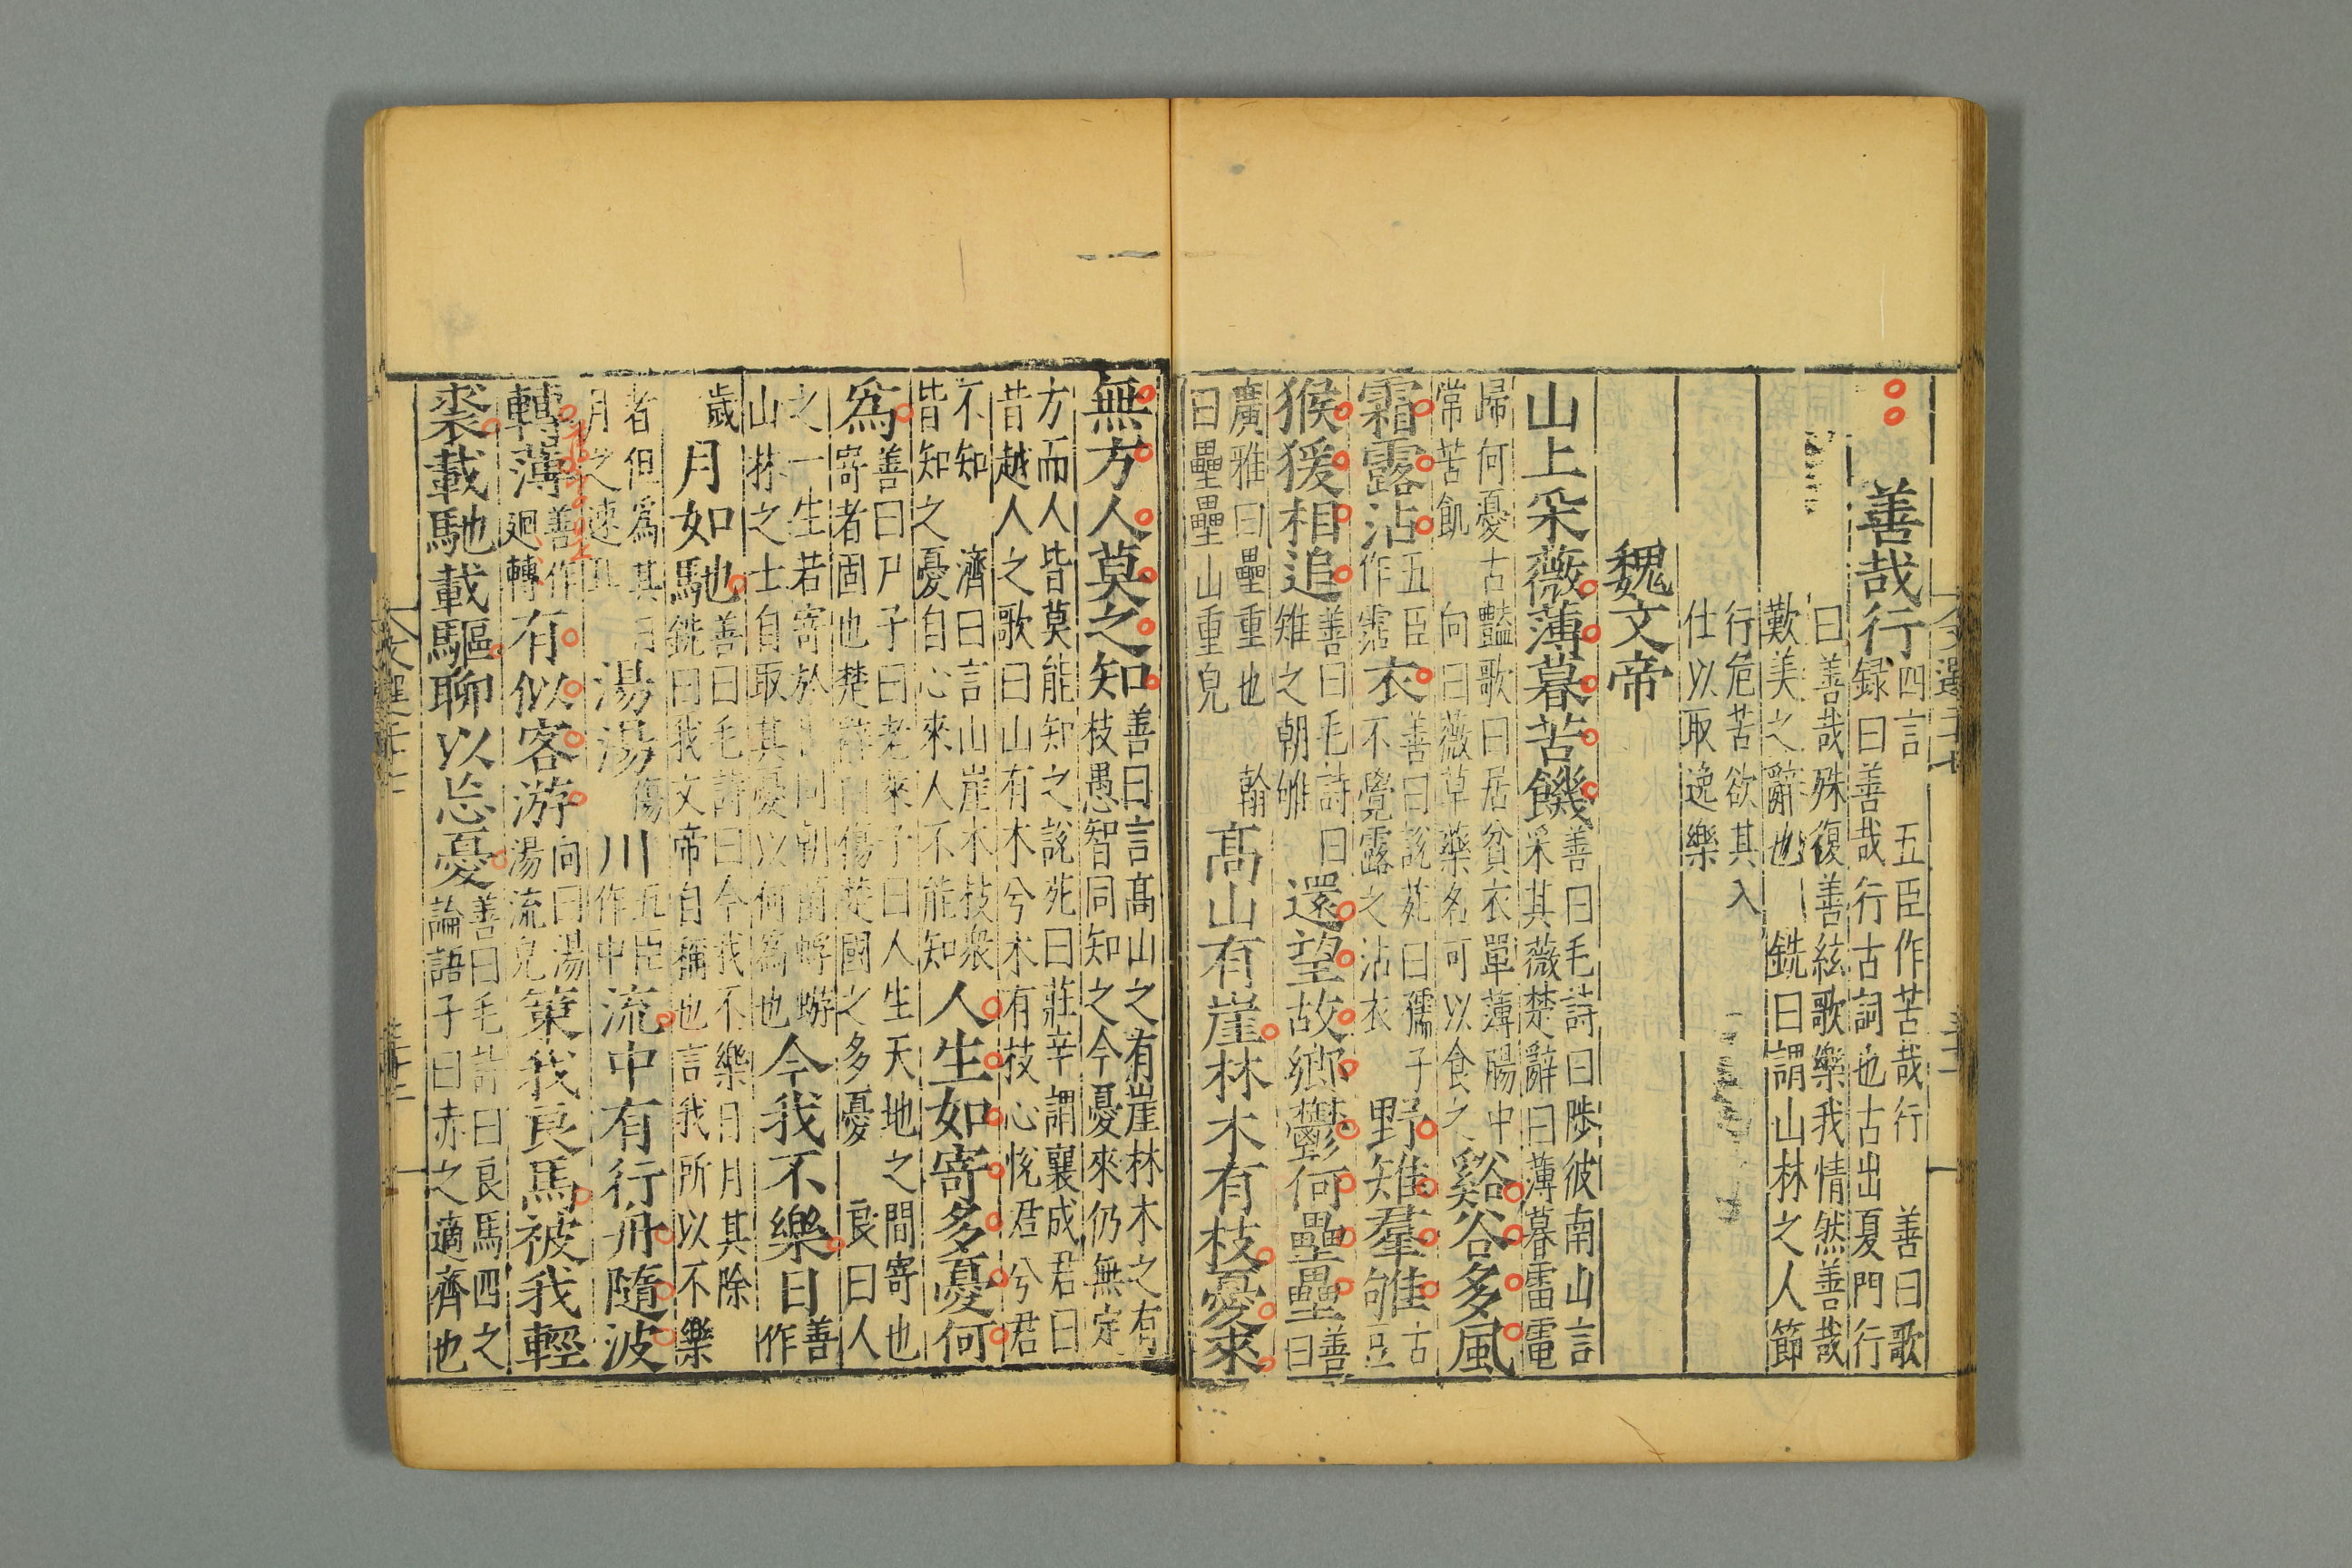 善哉行四言 五臣作苦哉行 善曰歌
録曰善哉行古詞也古出夏門行
曰善哉殊復善絃歌樂我情然善哉
歎美之辭也 銑曰謂山林之人節
行危苦欲其入
仕以取逸樂
魏文帝
山上采薇薄暮苦饑善曰毛詩曰陟彼南山言
采其薇楚辭曰薄暮雷電
歸何憂古豔歌曰居貧衣單薄腸中
常苦飢 向曰薇草藥名可以食之
谿谷多風
霜露沾五臣
作霑衣善曰說苑曰孺子
不覺露之沾衣野雉羣雊古
豆
猴猨相追善曰毛詩曰
雉之朝雊還望故鄉鬱何壘壘善
曰
廣雅曰壘重也 翰
曰壘壘山重皃高山有崖林木有枝憂來
無方人莫之知善曰言高山之有崖林木之有
枝愚智同知之今憂來仍無定
方而人皆莫能知之說苑曰莊辛謂襄成君曰
昔越人之歌曰山有木兮木有枝心恱君兮君
不知 濟曰言山崖木枝衆
皆知之憂自心來人不能知人生如寄多憂何
為善曰尸子曰老萊子曰人生天地之間寄也
寄者固也楚辭曰傷楚國之多憂 良曰人
之一生若寄於 同朝菌蜉蝣
山林之士自取其憂以何為也今我不樂日善
作
歲月如馳善曰毛詩曰今我不樂日月其除
銑曰我文帝自稱也言我所以不樂
者但為其日
月之速湯湯傷川五臣
作中流中有行舟隨波
轉薄善作
廻轉有似客游向曰湯
湯流皃策我良馬被我輕
裘載馳載驅聊以忘憂善曰毛詩曰良馬四之
論語子曰赤之適齊也